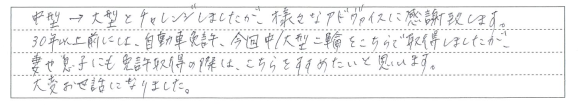 中型→大型とチャレンジしましたが、様々なアドヴァイスに感謝致します。
30年以上前には、自動車免許、今回中/大型二輪をこちらで取得しましたが、
妻や息子にも免許取得の際は、こちらをすすめたいと思います。
大変お世話になりました。